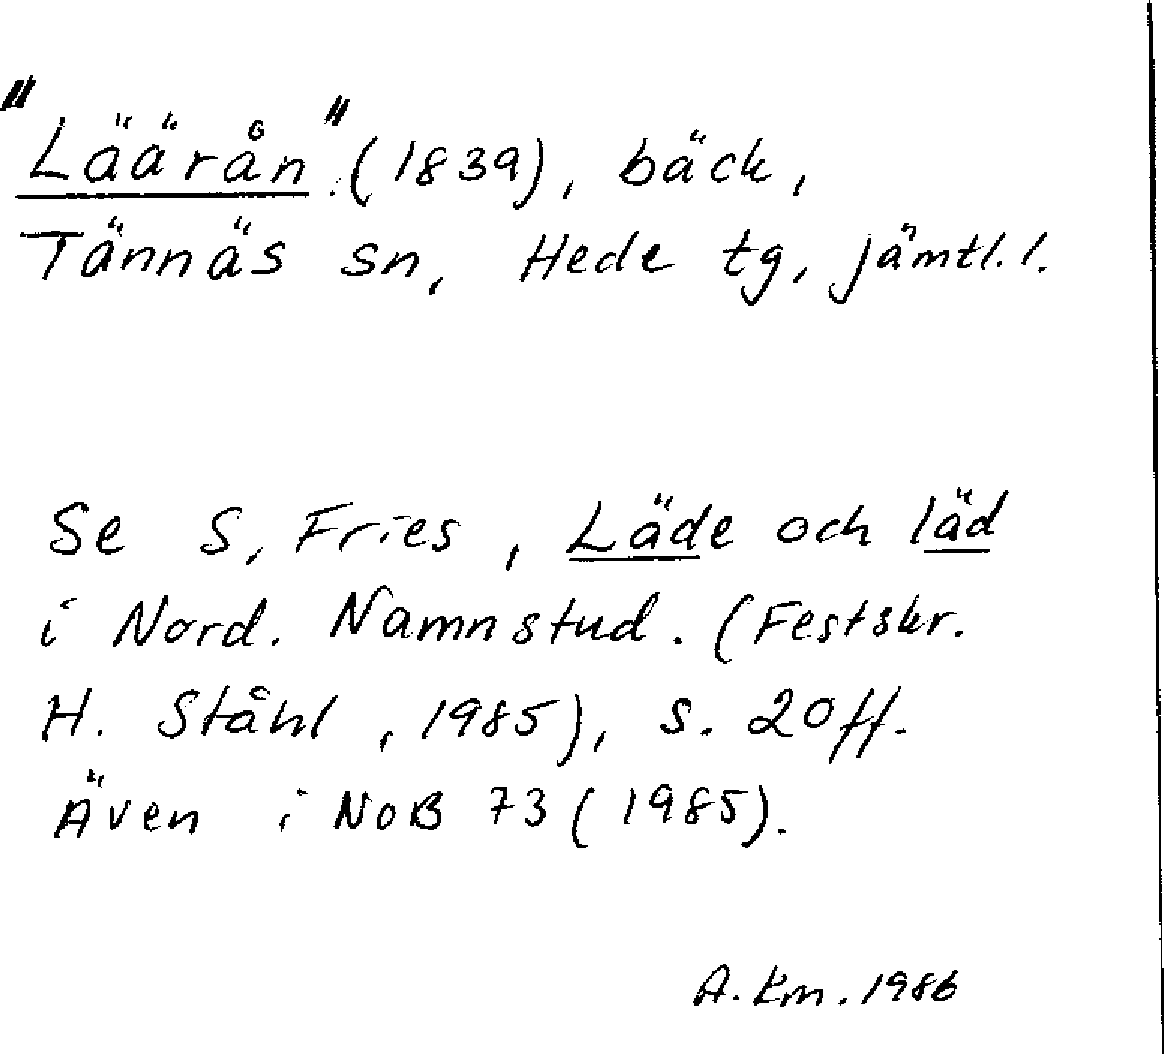 "Läärån" (1839), bäck,
Tännäs sn, Hede tg, Jämtl. l.
Se S. Fries, Läde och läd
i Nord. Namnstud. (Festskr.
H. Ståhl, 1985), s. 20 ff.
Även i NoB 73 (1985).
A. Km. 1986